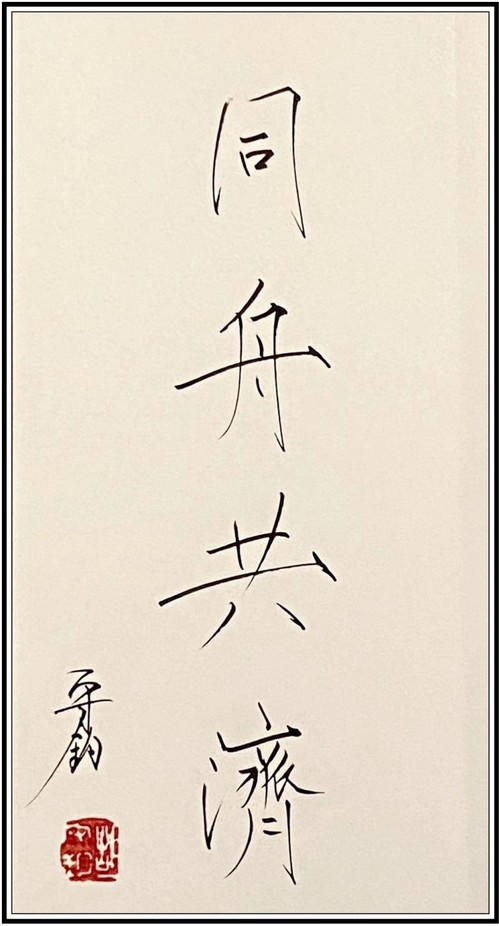 同舟共濟